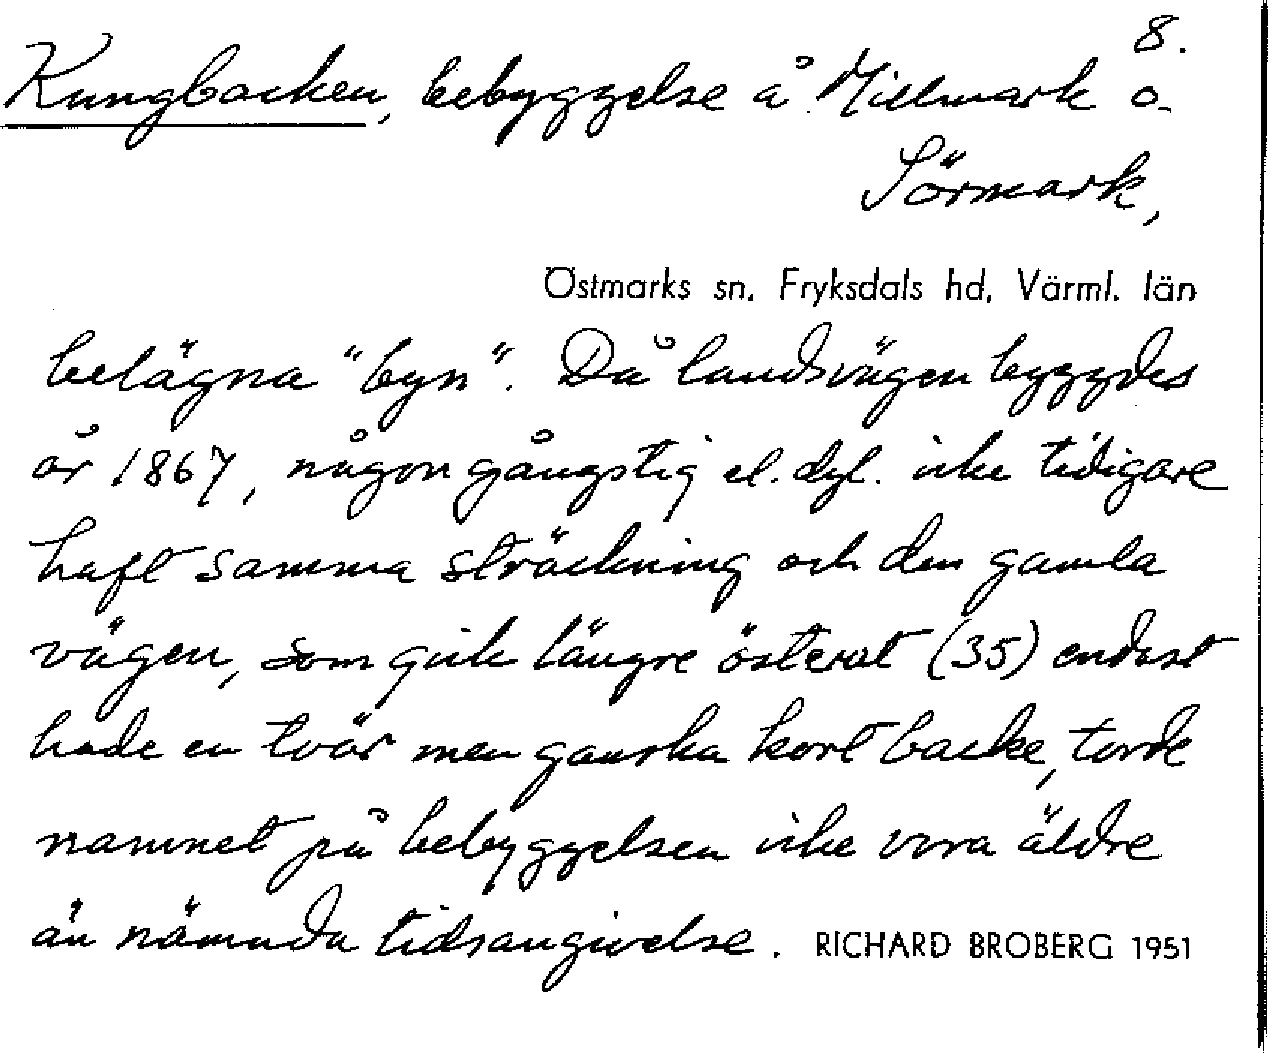 8.
Kungbacken, bebyggelse å Millmark o.
Sörmark,
Östmarks sn. Fryksdals hd. Värml. län
belägna "byn". Då landsvägen byggdes
år 1867, någon gångstig el. dyl. icke tidigare
haft samma sträckning och den gamla
vägen, som gick längre österut (35) endast
hade en tvär men ganska kort backe, torde
namnet på bebyggelsen icke vara äldre
än nämnda tidsangivelse. RICHARD BROBERG 1951